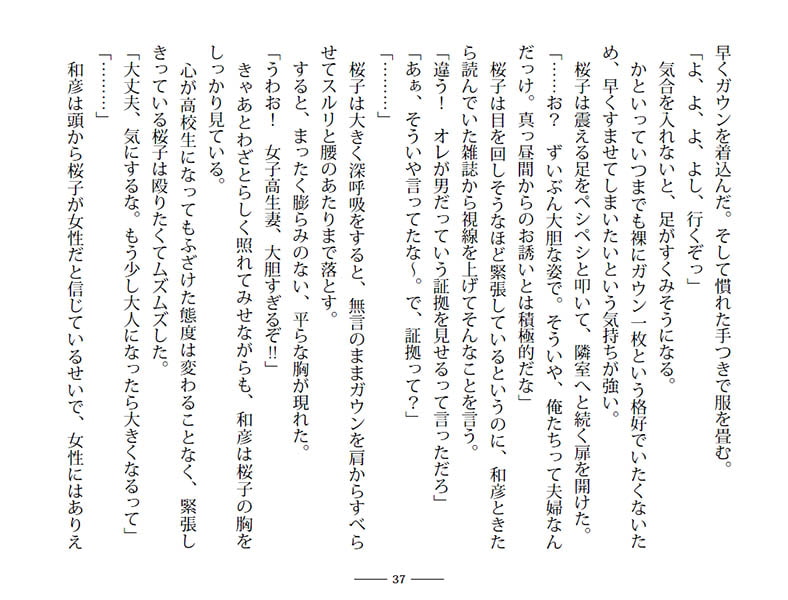 早くガウンを着込んだ。そして慣れた手つきで服を畳む。
「よ、よ、よ、よし、行くぞっ」
気合を入れないと、足がすくみそうになる。
かといっていつまでも裸にガウン一枚という格好でいたくないた
め、早くすませてしまいたいという気持ちが強い。
桜子は震える足をペシペシと叩いて、隣室へと続く扉を開けた。
「……お？　ずいぶん大胆な姿で。そういや、俺たちって夫婦なん
だっけ。真っ昼間からのお誘いとは積極的だな」
桜子は目を回しそうなほど緊張しているというのに、和彦ときた
ら読んでいた雑誌から視線を上げてそんなことを言う。
「違う！　オレが男だっていう証拠を見せるって言っただろ」
「あぁ、そういや言ってたな～。で、証拠って？」
「………」
桜子は大きく深呼吸をすると、無言のままガウンを肩からすべら
せてスルリと腰のあたりまで落とす。
すると、まったく膨らみのない、平らな胸が現れた。
「うわお！　女子高生妻、大胆すぎるぞ!!」
きゃあとわざとらしく照れてみせながらも、和彦は桜子の胸を
しっかり見ている。
心が高校生になってもふざけた態度は変わることなく、緊張し
きっている桜子は殴りたくてムズムズした。
「大丈夫、気にするな。もう少し大人になったら大きくなるって」
「………」
和彦は頭から桜子が女性だと信じているせいで、女性にはありえ
37